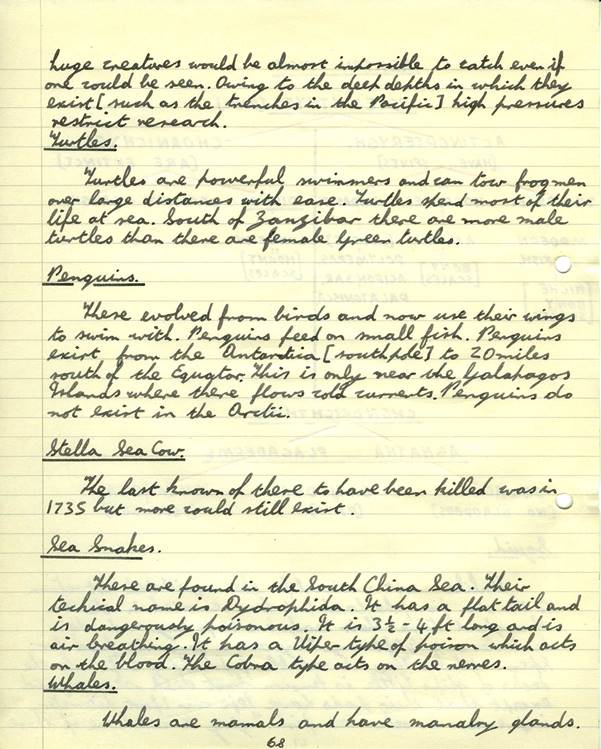 huge creatures would be almost impossible to catch even if
one could be seen. Owing to the deep depths in which they
exist [such as the trenches in the Pacific] high pressures
restrict research.
Turtles.
Turtles are powerful swimmers and can tow frogmen
over large distances with ease. Turtles spend most of their
life at sea. South of Zanzibar there are more male
turtles than there are female Green turtles.
Penguins.
These evolved from birds and now use their wings
to swim with. Penguins feed on small fish. Penguins
exist from the Antartica [south pole] to 20 miles
south of the Equator. This is only near the Galapagos
Islands where there flows cold currents. Penguins do
not exist in the Arctic.
Stella Sea Cow.
The last known of these to have been killed was in
1735 but more could still exist.
Sea Snakes.
These are found in the South China Sea. Their
techical name is Dydrophida. It has a flat tail and
is dangerously poisonous. It is 3½ - 4 ft long and is
air breathing. It has a Viper type of poison which acts
on the blood. The Cobra type acts on the nerves.
Whales.
Whales are mamals and have manalry glands.
68